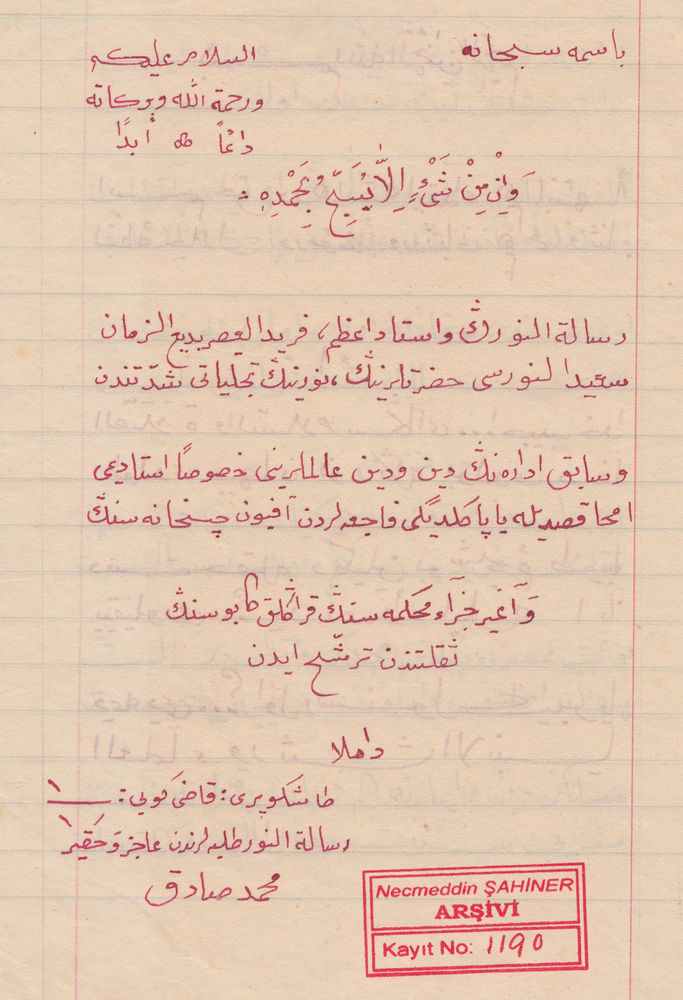 باسمه سبحانه
السلام عليكم
ورحمة الله وبركاته
دائماً ابدًا
وَاِنْ مِنْ شَىْءٍ اِلَّا يُسَبِّحُ بِحَمْدِهِ
رسالة النورڭ واستاد اعظم، فريد العصر بديع الزمان
سعيد النورسى حضرتلرينڭ، نورينڭ تجلياتى شدّتندن
وسابق ادارهنڭ دين ودين عالملرينى خصوصًا استاديمى
امحا قصديله ياپا كلديگى فاجعهلردن آفيون جسخانه سنڭ
وَ آغير جزآء محكمه سنڭ قراڭلق كابوسنڭ
ثقلتندن ترشّح ايدن
داهلا
طاشكوپرى: قاضى كويى:
رسالة النور طلبهلرندن عاجز وَ حقير
محمد صادق
Necmeddin ŞAHİNER
ARŞİVİ
Kayıt No: 1190